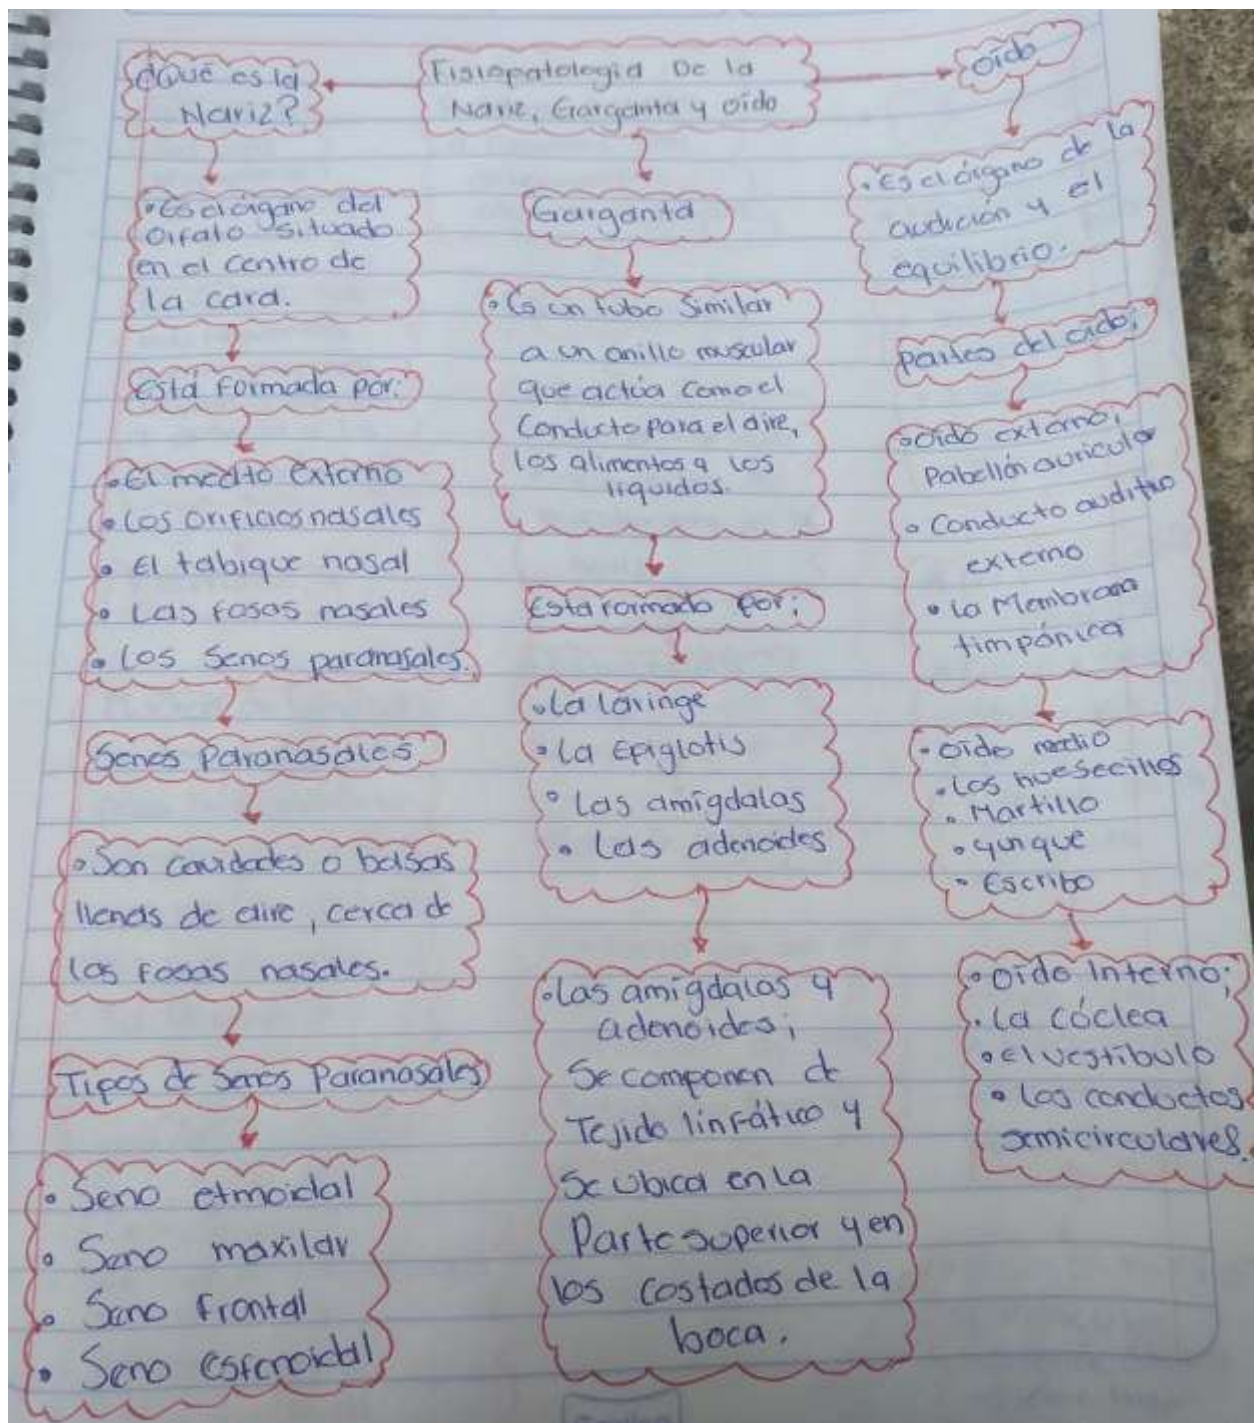 Fisiopatología De la
Nariz, Garganta y oído
¿Qué es la
Nariz?
• Es el órgano del
olfato situado
en el centro de
la cara.
Está formada por:
• El medito externo
• Los orificios nasales
• El tabique nasal
• Las fosas nasales
• Los Senos paranasales.
Senos Paranasales
• Son cavidades o bolsas
llenas de aire, cerca de
las fosas nasales.
Tipos de Senos Paranasales
• Seno etmoidal
• Seno maxilar
• Seno frontal
• Seno esfenoidal
Garganta
• Es un tubo Similar
a un anillo muscular
que actúa como el
Conducto para el aire,
los alimentos y los
líquidos.
Esta formado por;
• La laringe
• La Epiglotis
• Las amígdalas
• Las adenoides
• Las amígdalas y
adenoides;
Se componen de
Tejido linfático y
Se ubica en la
Parte superior y en
los costados de la
boca.
oído
• Es el órgano de la
audición y el
equilibrio.
Partes del oído;
• oído externo;
Pabellón auricular
• Conducto auditivo
externo
• La Membrana
timpánica
• oído medio
• Los huesecillos
• Martillo
• yunque
• Escribo
• oído Interno;
• La cóclea
• el vestíbulo
• Los conductos
semicirculares.